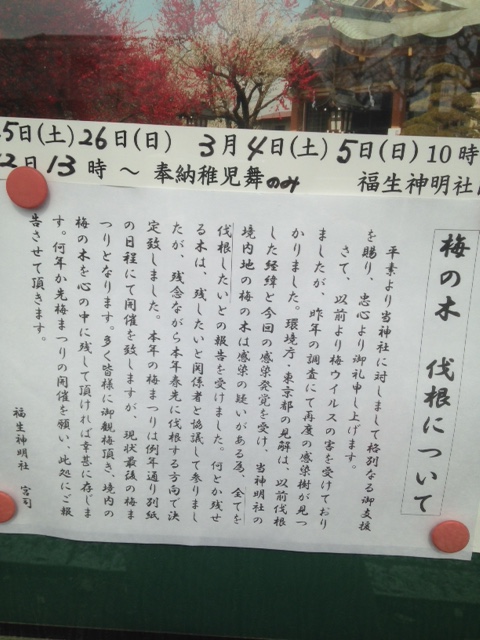 5日(土)26日(日) 3月4日(土)5日(日)10時
12日13時～奉納稚児舞のみ 福生神明社
梅の木 伐根について
平素より当神社に対しまして格別なる御支援
を賜り、忠心より御礼申し上げます。
さて、以前より梅ウイルスの害を受けており
ましたが、昨年の調査にて再度の感染樹が見つ
かりました。環境庁・東京都の見解は、以前伐根
した経緯と今回の感染発覚を受け、当神社の
境内地の梅の木は感染の疑いがある為、全てを
伐根したいとの報告を受けました。何とか残せ
る木は、残したいと関係者と協議して参りまし
たが、残念ながら本年春先に伐根する方向で決
定致しました。本年の梅まつりは例年通り別紙
の日程にて開催を致しますが、現状最後の梅ま
つりとなります。多く皆様に御観梅頂き、境内の
梅の木を心の中に残して頂ければ幸甚に存じま
す。何年か先梅まつりの開催を願い、此処にご報
告させて頂きます。
福生神明社 宮司